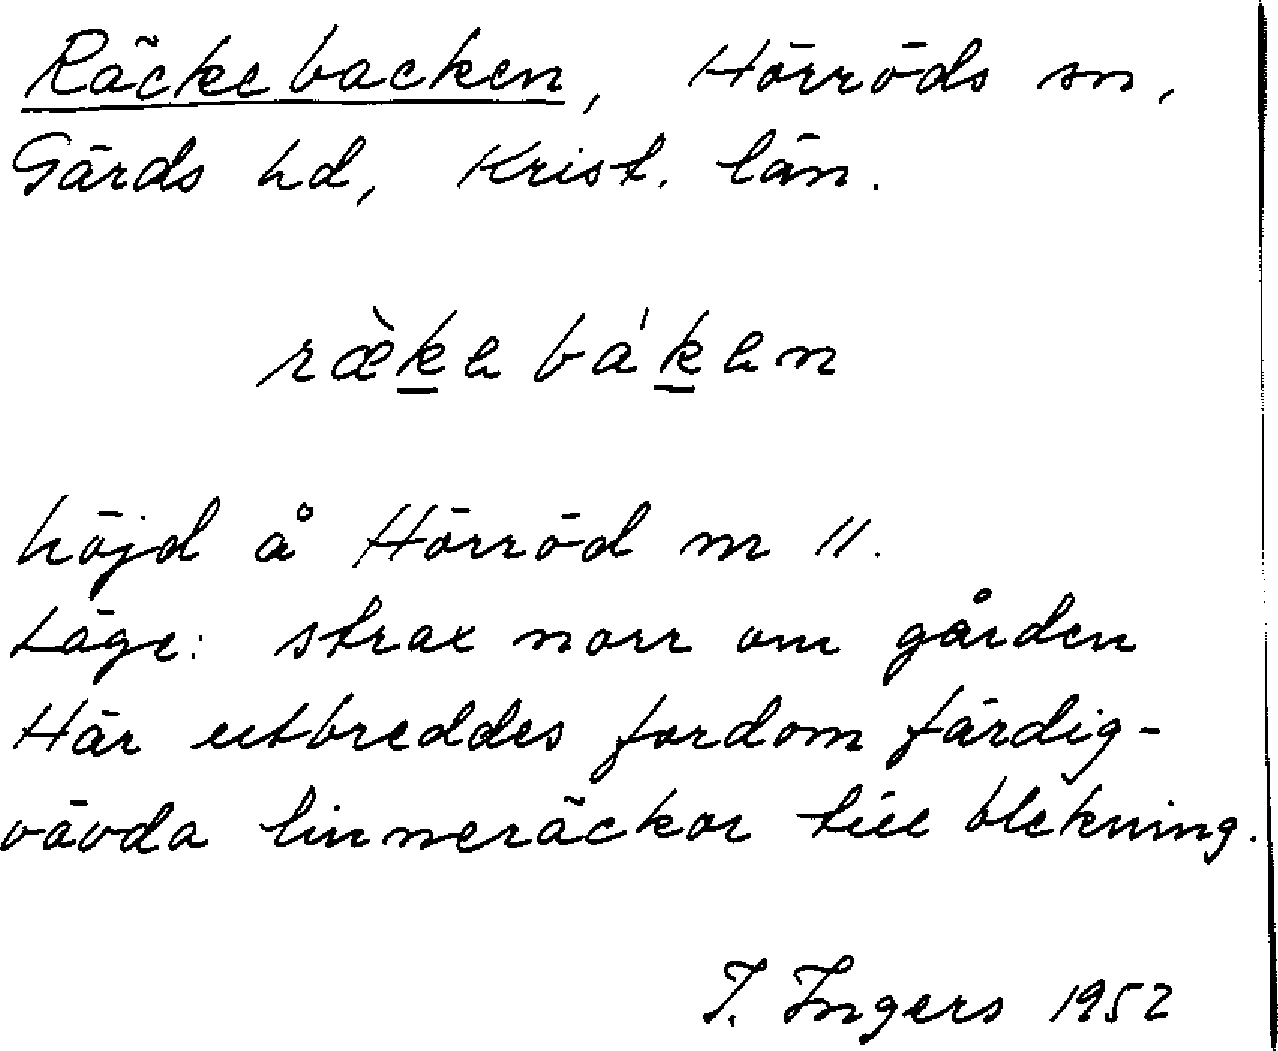 Räckebacken, Hörröds sn,
Gärds hd, Krist. län.
ræ̀k̲e bák̲en
höjd å Hörröd nr 11.
Läge: strax norr om gården
Här utbreddes fordom färdig-
vävda linneräckor till blekning.
I. Ingers 1952